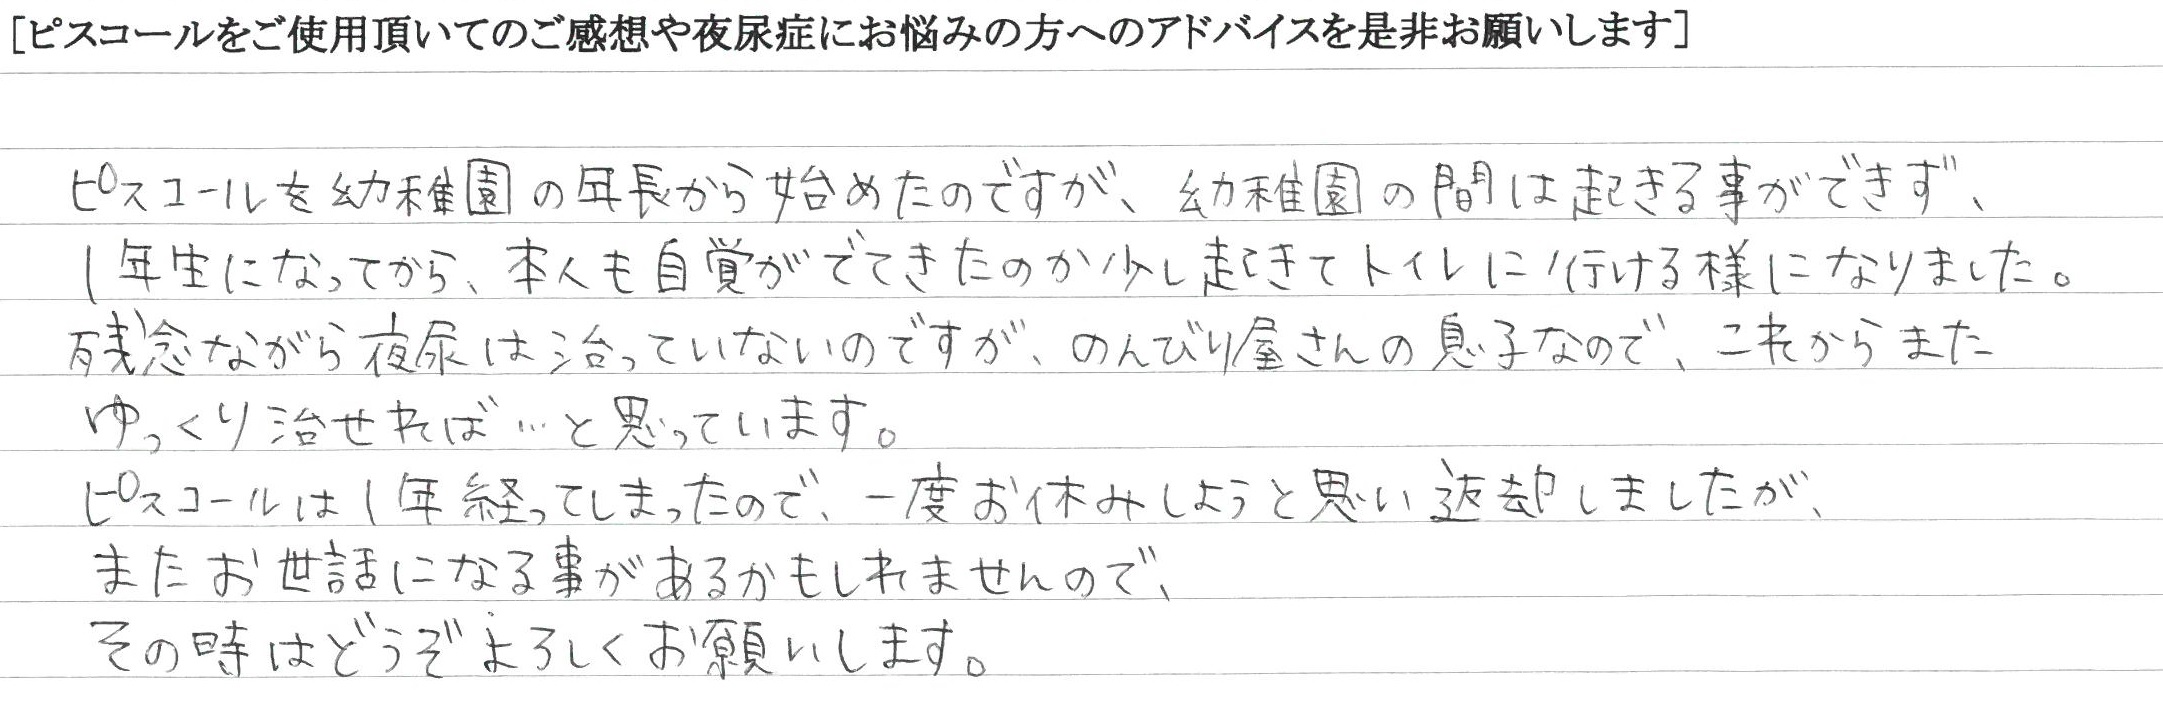 [ピスコールをご使用頂いてのご感想や夜尿症にお悩みの方へのアドバイスを是非お願いします]
ピスコールを幼稚園の年長から始めたのですが、幼稚園の間は起きる事ができず、
1年生になってから、本人も自覚がでてきたのか少し起きてトイレに行ける様になりました。
残念ながら夜尿は治っていないのですが、のんびり屋さんの息子なので、これからまた
ゆっくり治せれば…と思っています。
ピスコールは1年経ってしまったので、一度お休みしようと思い返却しましたが、
またお世話になる事があるかもしれませんので、
その時はどうぞよろしくお願いします。